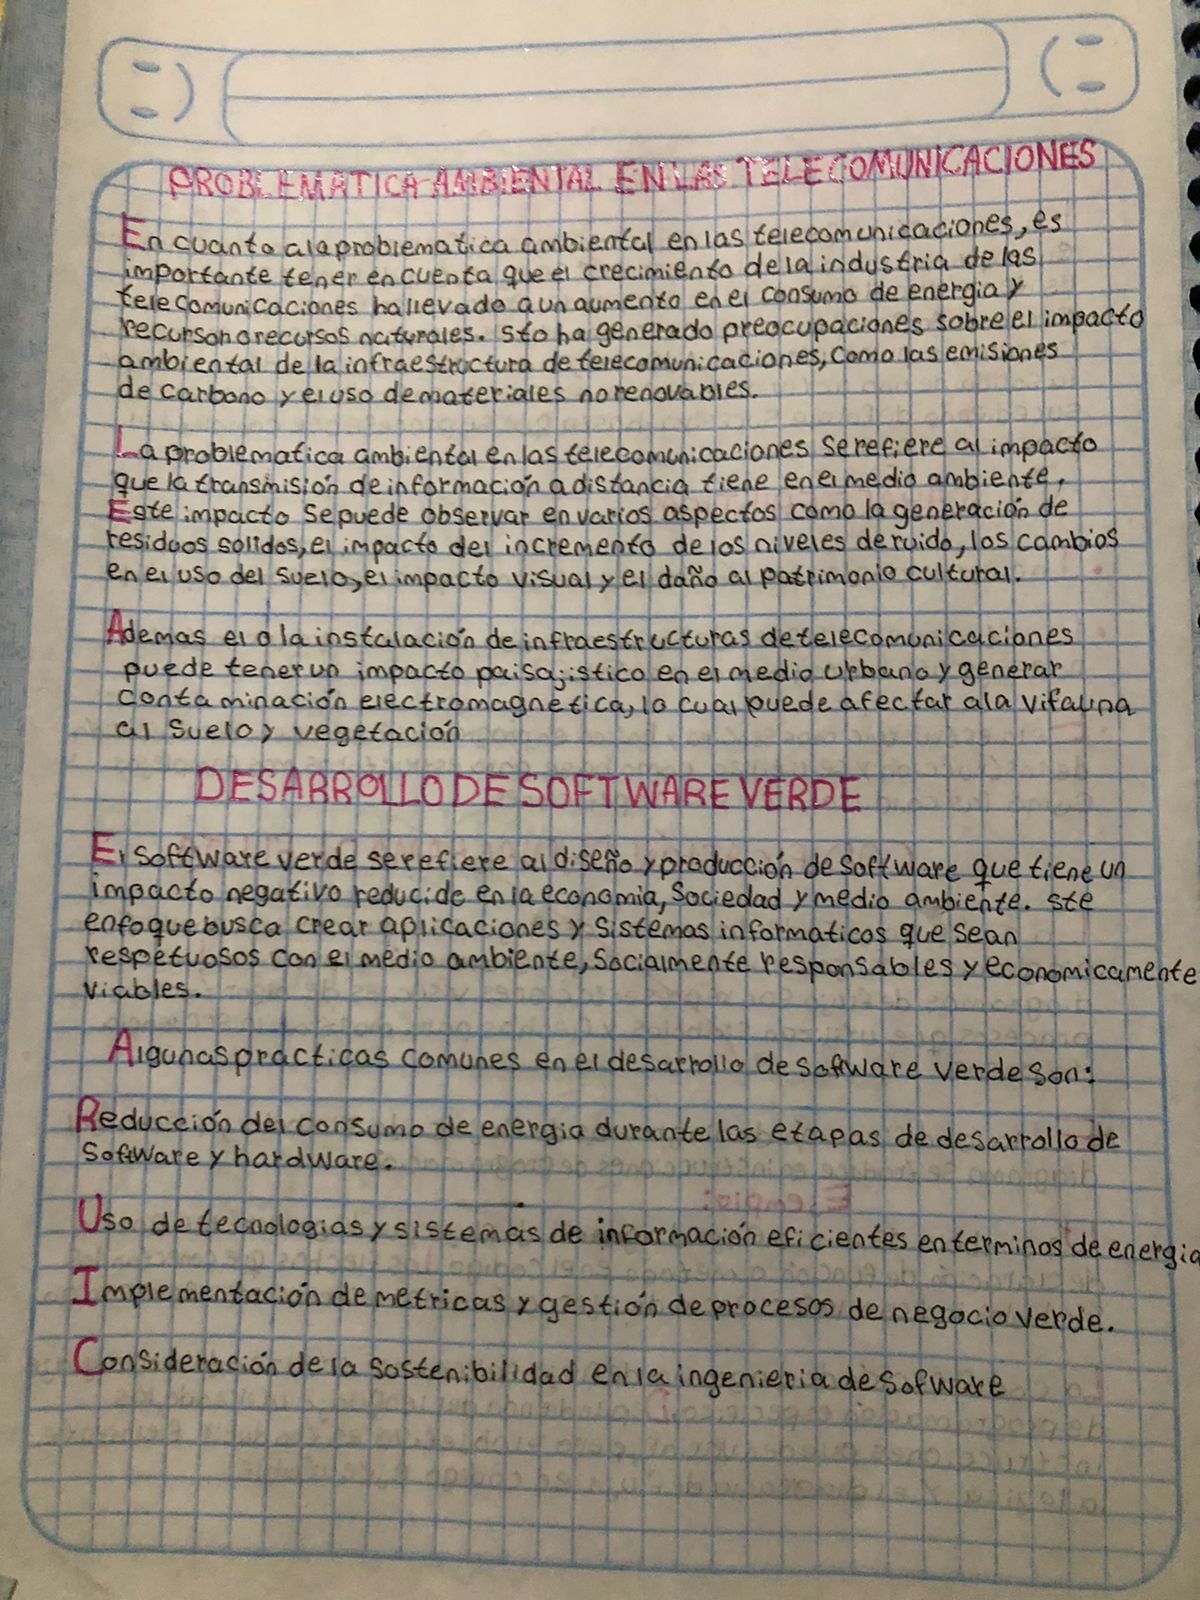 PROBLEMATICA AMBIENTAL EN LAS TELECOMUNICACIONES
En cuanto a la problematica ambiental en las telecomunicaciones, es
importante tener en cuenta que el crecimiento de la industria de las
telecomunicaciones ha llevado a un aumento en el consumo de energia y
recurson o recursos naturales. sto ha generado preocupaciones sobre el impacto
ambiental de la infraestructura de telecomunicaciones, como las emisiones
de carbono y el uso de materiales no renovables.
La problematica ambiental en las telecomunicaciones se refiere al impacto
que la transmisión de información a distancia tiene en el medio ambiente.
Este impacto se puede observar en varios aspectos como la generación de
residuos solidos, el impacto del incremento de los niveles de ruido, los cambios
en el uso del suelo, el impacto visual y el daño al patrimonio cultural.
Ademas el o la instalación de infraestructuras de telecomunicaciones
puede tener un impacto paisajistico en el medio urbano y generar
contaminación electromagnetica, lo cual puede afectar a la vifauna
al suelo y vegetación
DESARROLLO DE SOFTWARE VERDE
El software verde se refiere al diseño y producción de software que tiene un
impacto negativo reducide en la economia, sociedad y medio ambiente. ste
enfoque busca crear aplicaciones y sistemas informaticos que sean
respetuosos con el medio ambiente, socialmente responsables y economicamente
viables.
Algunas practicas comunes en el desarrollo de software verde son:
Reducción del consumo de energia durante las etapas de desarrollo de
software y hardware.
Uso de tecnologias y sistemas de información eficientes en terminos de energia
Implementación de metricas y gestión de procesos de negocio verde.
Consideración de la sostenibilidad en la ingenieria de sofware